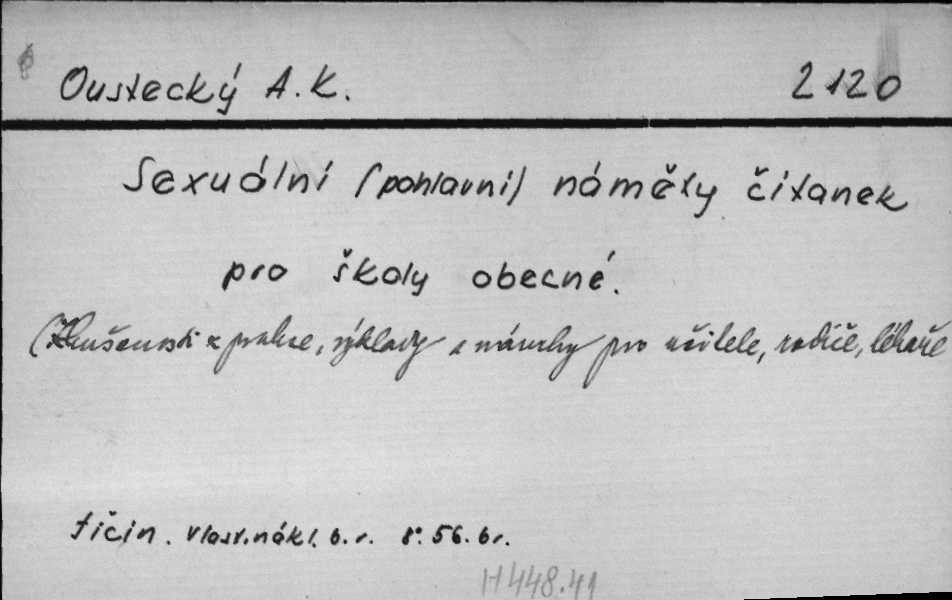 Oustecký A.K. 2120
Sexuální (pohlavní) náměty čítanek
pro školy obecné.
(Zkušenosti z prakse, výklady a návrhy pro učitele, rodiče, lékaře
Jičín. Vlast.nákl. b.r. 8°. 56. br.
H448.41